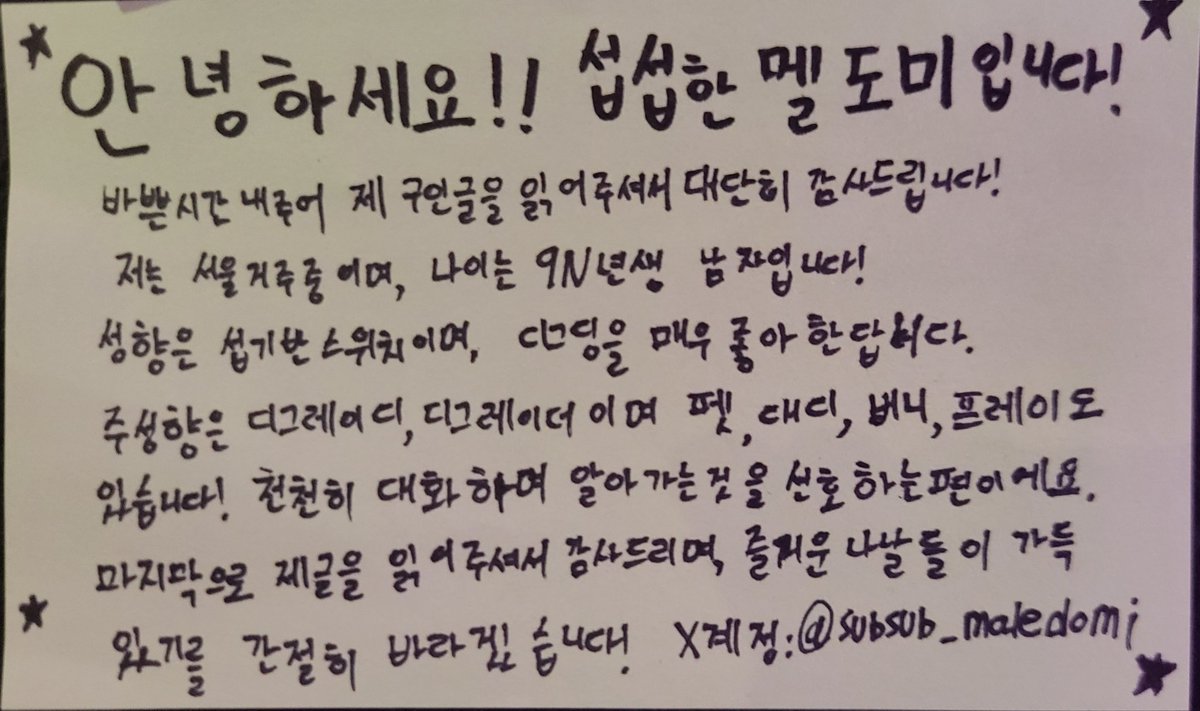 안녕하세요!! 섭섭한 멜도미입니다!
바쁜시간 내주어 제 구인글을 읽어주셔서 대단히 감사드립니다!
저는 서울거주중이며, 나이는 9N년생 남자입니다!
성향은 섭기반스위치이며, 디그딩을 매우 좋아한답니다.
주성향은 디그레이디, 디그레이더이며 펫, 대디, 버니, 프레이도
있습니다! 천천히 대화하며 알아가는것을 선호하는편이에요.
마지막으로 제글을 읽어주셔서 감사드리며, 즐거운 나날들이 가득
있기를 간절히 바라겠습니다! X계정:@subsub_maledomi